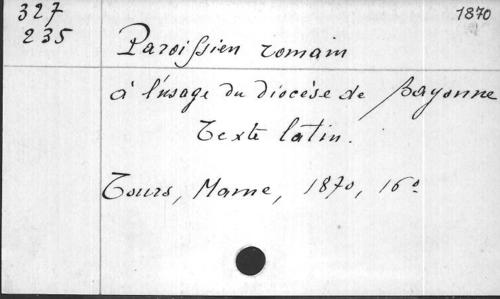 327
235
1870
Paroissien romain
à l'usage du diocèse de Bayonne
Texte latin.
Tours, Mame, 1870, 16°